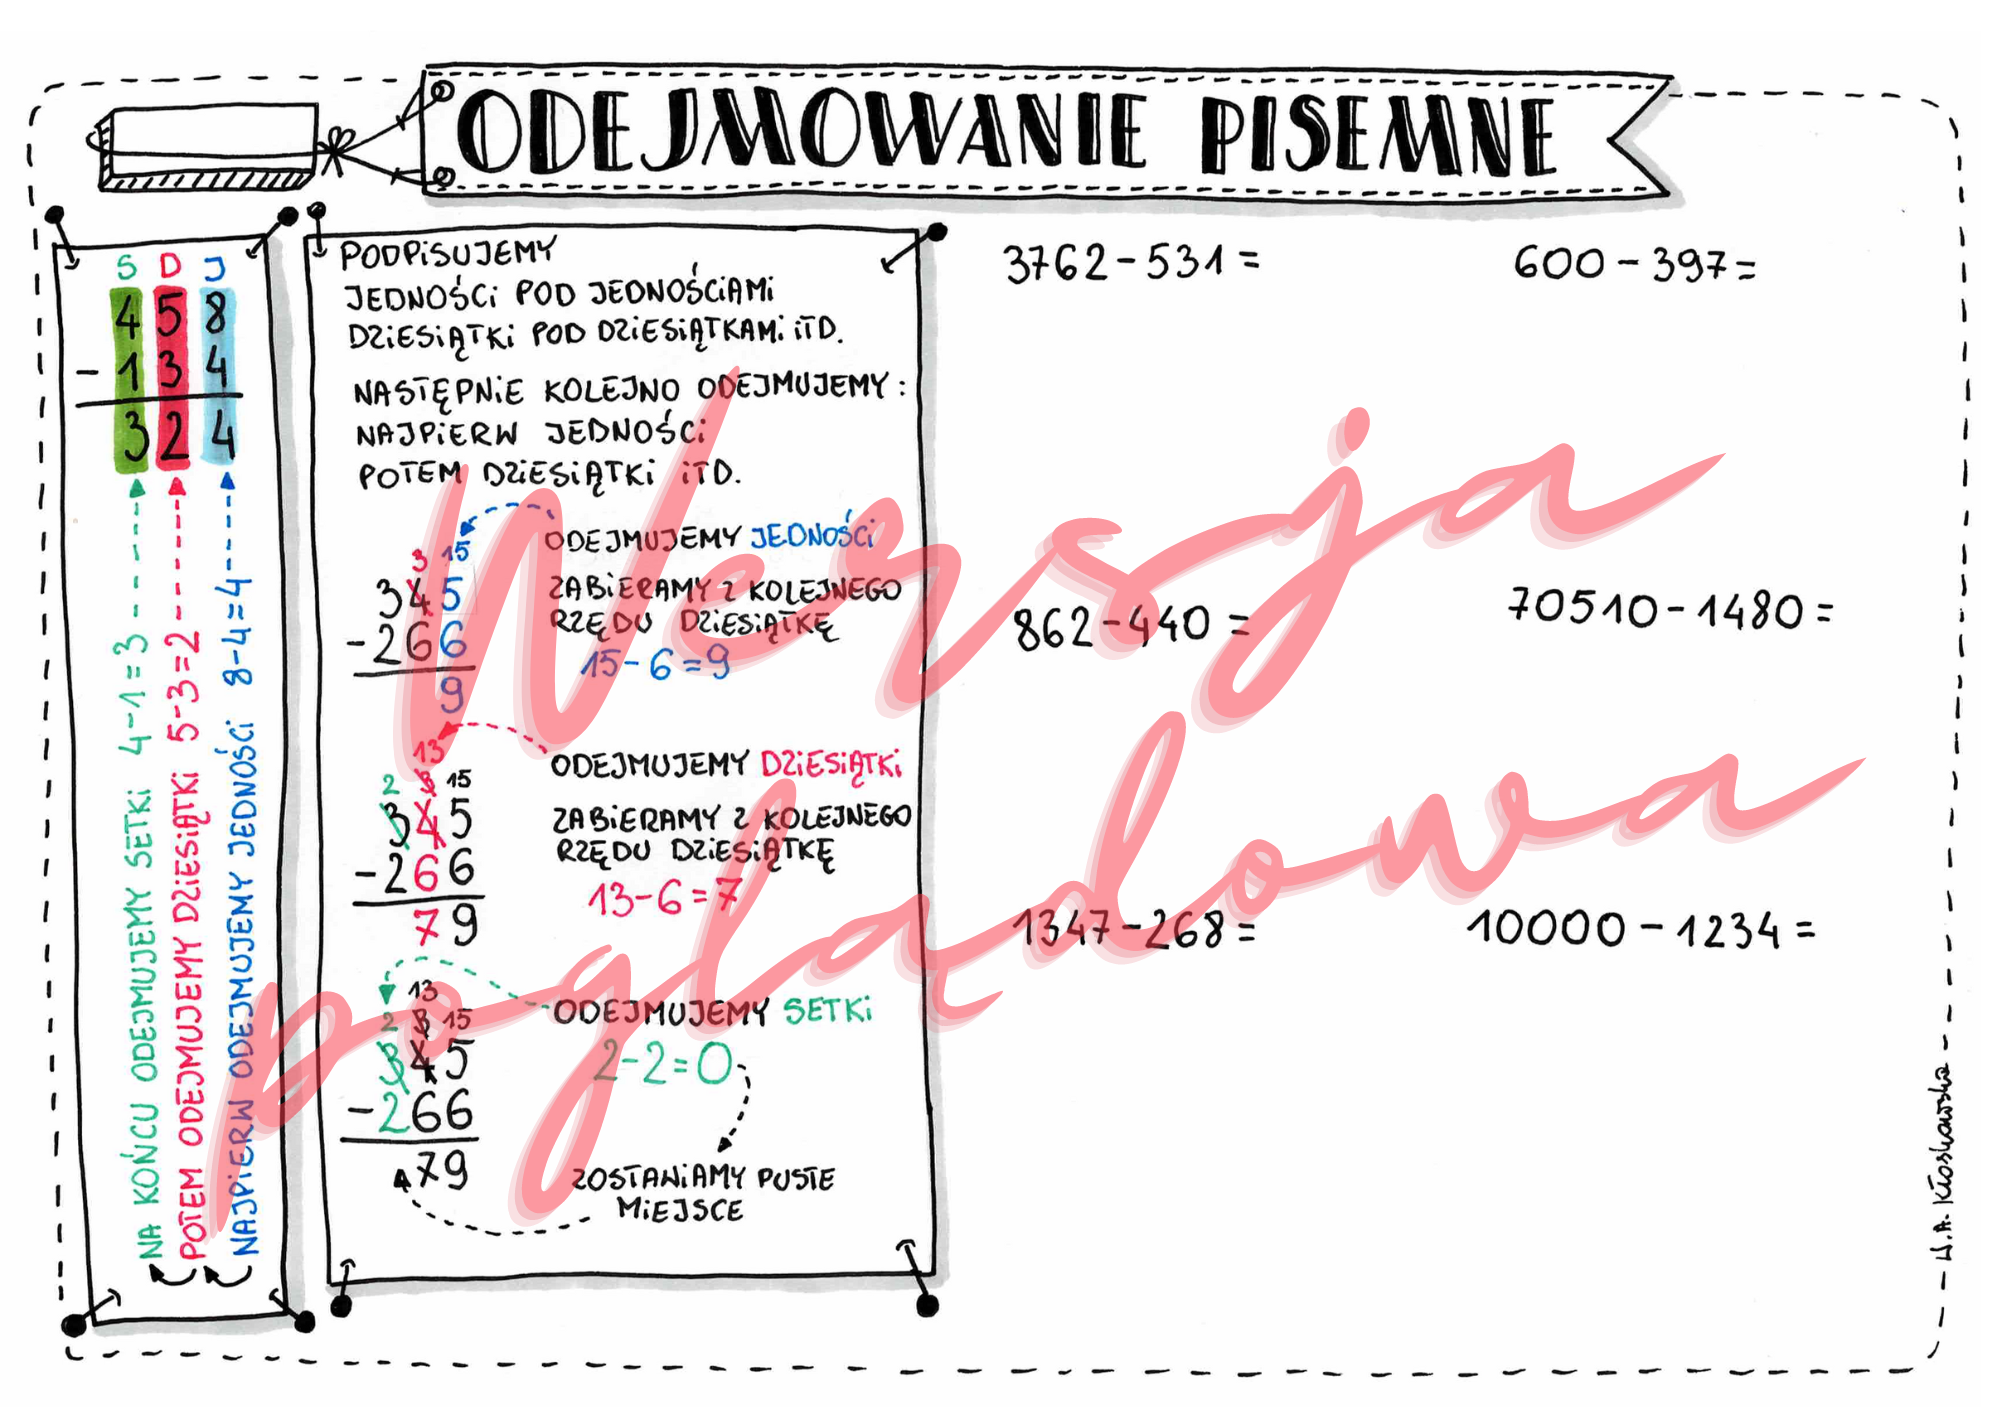 ODEJMOWANIE PISEMNE
S D J
4 5 8
- 1 3 4
3 2 4
NA KOŃCU ODEJMUJEMY SETKI 4-1=3
POTEM ODEJMUJEMY DZIESIĄTKI 5-3=2
NAJPIERW ODEJMUJEMY JEDNOŚCI 8-4=4
PODPISUJEMY
JEDNOŚCI POD JEDNOŚCIAMI
DZIESIĄTKI POD DZIESIĄTKAMI ITD.
NASTĘPNIE KOLEJNO ODEJMUJEMY:
NAJPIERW JEDNOŚCI
POTEM DZIESIĄTKI ITD.
3 15
345
-266
9
ODEJMUJEMY JEDNOŚCI
ZABIERAMY Z KOLEJNEGO
RZĘDU DZIESIĄTKĘ
15-6=9
13
2 3 15
345
-266
79
ODEJMUJEMY DZIESIĄTKI
ZABIERAMY Z KOLEJNEGO
RZĘDU DZIESIĄTKĘ
13-6=7
13
2 3 15
345
-266
79
ODEJMUJEMY SETKI
2-2=0
ZOSTAWIAMY PUSTE
MIEJSCE
3762-531=
600-397=
862-440=
70510-1480=
1347-268=
10000-1234=
Wersja
poglądowa